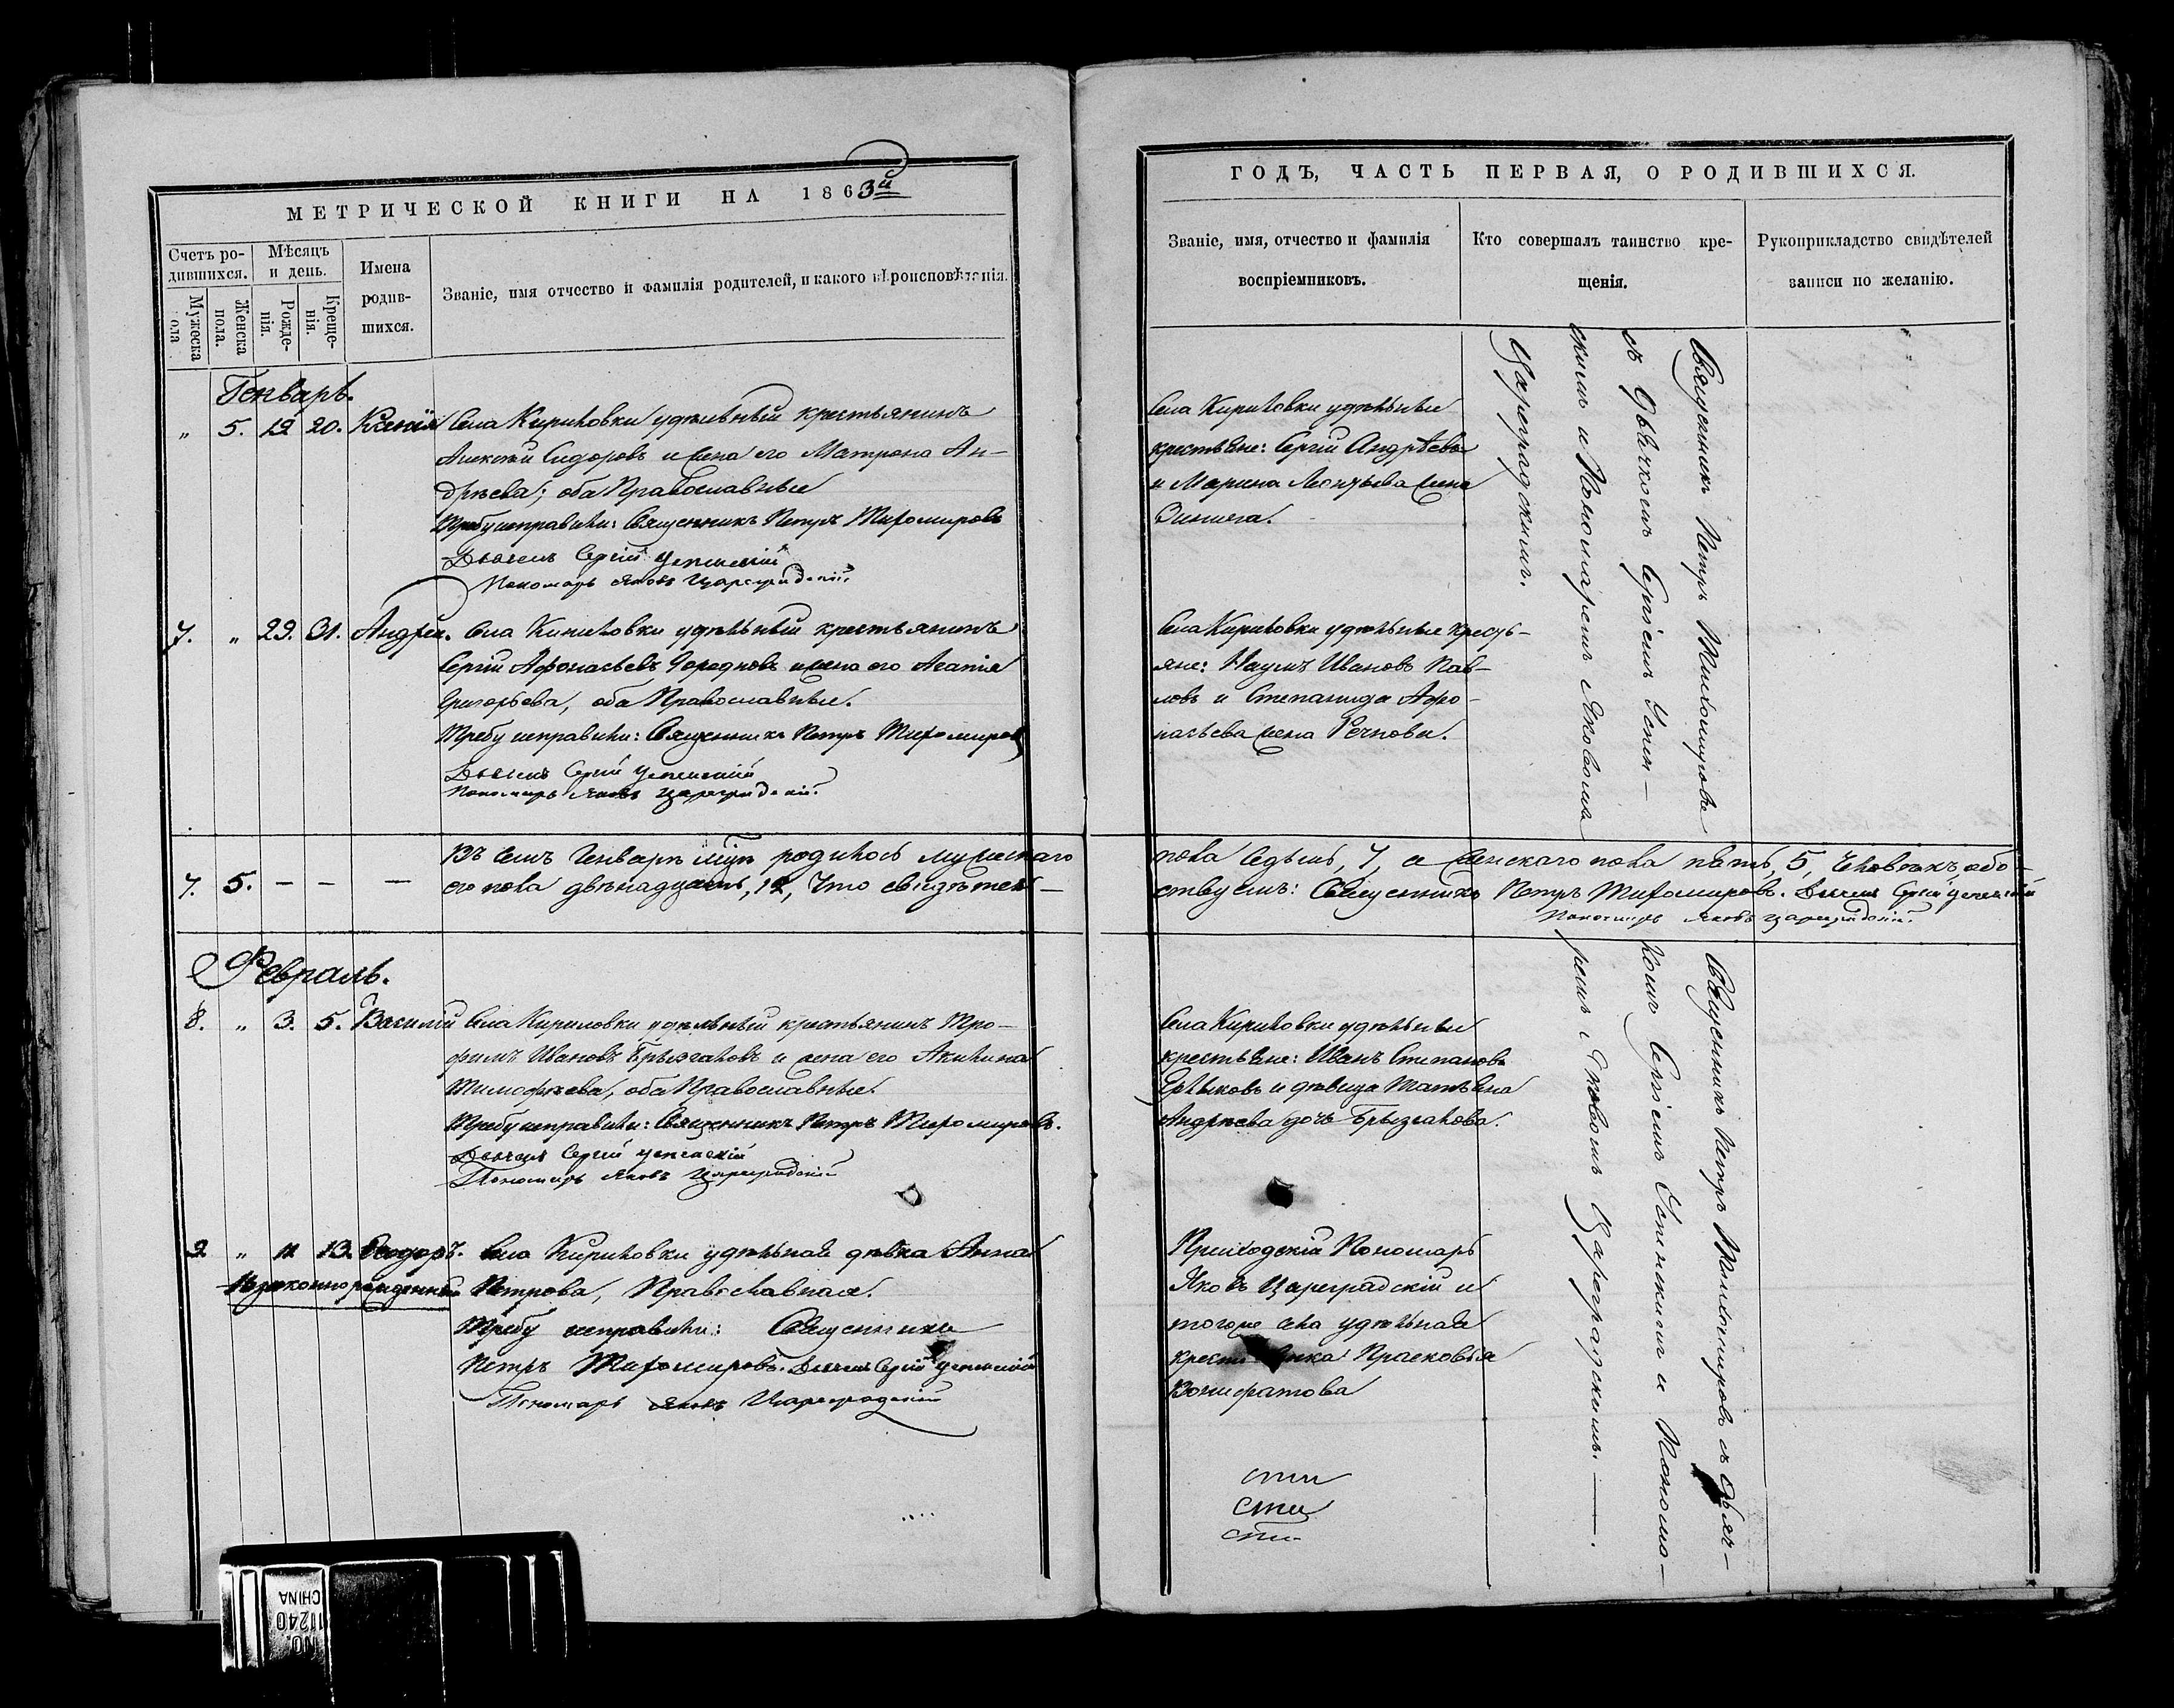 МЕТРИЧЕСКОЙ КНИГИ НА 1863й
Счетъ ро-
дившихся.
Мѣсяцъ
и день.
Мужеска
пола
Женска
пола.
Рожде-
нія.
Креще-
нія.
Имена
родив-
шихся.
Званіе, имя отчество и фамилія родителей, и какого вѣроисповѣданія.
Генварь.
„ 5. 12 20. Ксенія Села Кириловки удѣльный крестьянинъ
Алексѣй Сидоровъ и жена его Матрона Ан-
дрѣева; оба Православные
Требу исправили: Священникъ Петръ Тихомировъ
Дьячекъ Сергій Успенскій
Пономарь Яковъ Цареградскій.
7. „ 29. 31. Андрей. Села Кириловки удѣльный крестьянинъ
Сергій Афонасьевъ и жена его Агапія
Григорьева, оба Православные.
Требу исправили: Священникъ Петръ Тихомировъ
Дьячекъ Сергій Успенскій
Пономарь Яковъ Цареградскій.
7. 5. — — — Въ семъ Генварѣ мцѣ родилось мужескаго
его пола двѣнадцать, 12, Что свидѣтель-
Февраль.
8. „ 3. 5. Василій Села Кириловки удѣльный крестьянинъ Тро-
фимъ Ивановъ Брызгаловъ и жена его Акилина
Тимофѣева, оба Православные.
Требу исправили: Священникъ Петръ Тихомировъ.
Дьячекъ Сергій Успенскій
Пономарь Яковъ Цареградскій
9. „ 11 13. Ѳеодоръ. Села Кириловки удѣльная дѣвка Анна
Незаконнорожденный Петрова, Православная.
Требу исправили: Священникъ
Петръ Тихомировъ. Дьячекъ Сергій Успенскій
Пономарь Яковъ Цареградскій
ГОДЪ, ЧАСТЬ ПЕРВАЯ, О РОДИВШИХСЯ.
Званіе, имя, отчество и фамилія
воспріемниковъ.
Кто совершалъ таинство кре-
щенія.
Рукоприкладство свидѣтелей
записи по желанію.
Села Кириловки удѣльные
крестьяне: Сергій Андрѣевъ
и Марина Леонтьева жена
Села Кириловки удѣльные кресть-
яне: Наумъ Ивановъ Пав-
ловъ и Степанида Афо-
насьева жена
Священникъ Петръ Тихомировъ
съ Дьячкомъ Сергіемъ Успен-
скимъ и Пономаремъ Яковомъ
Цареградскимъ.
пола седьмь, 7, а женскаго пола пять, 5, Человѣкъ, обо-
ствуемъ: Священникъ Петръ Тихомировъ. Дьячекъ Сергій Успенскій
Пономарь Яковъ Цареградскій.
Села Кириловки удѣльные
крестьяне: Иванъ Степановъ
и дѣвица Татьяна
Андрѣева дочь Брызгалова.
Приходскій Пономарь
Яковъ Цареградскій и
тогоже села удѣльная
Прасковья
Вонифатова
Священникъ Петръ Тихомировъ съ Дьяч-
комъ Сергіемъ Успенскимъ и Понома-
ремъ Яковомъ Цареградскимъ. —
сти
сти
сти
NO.
11240
CHINA